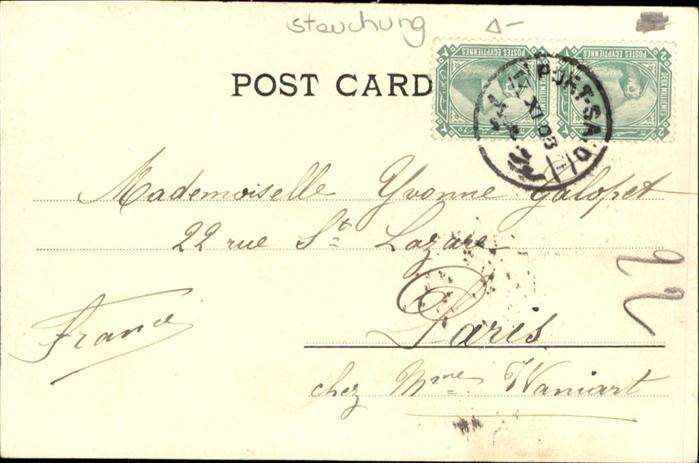 steuchung
POST CARD
POSTES EGYPTIENNES
POSTES EGYPTIENNES
PORT-SAID
XI 03
Mademoiselle Yvonne Galopet
22 rue St Lazare
Paris
France
chez Mme Waniart
22